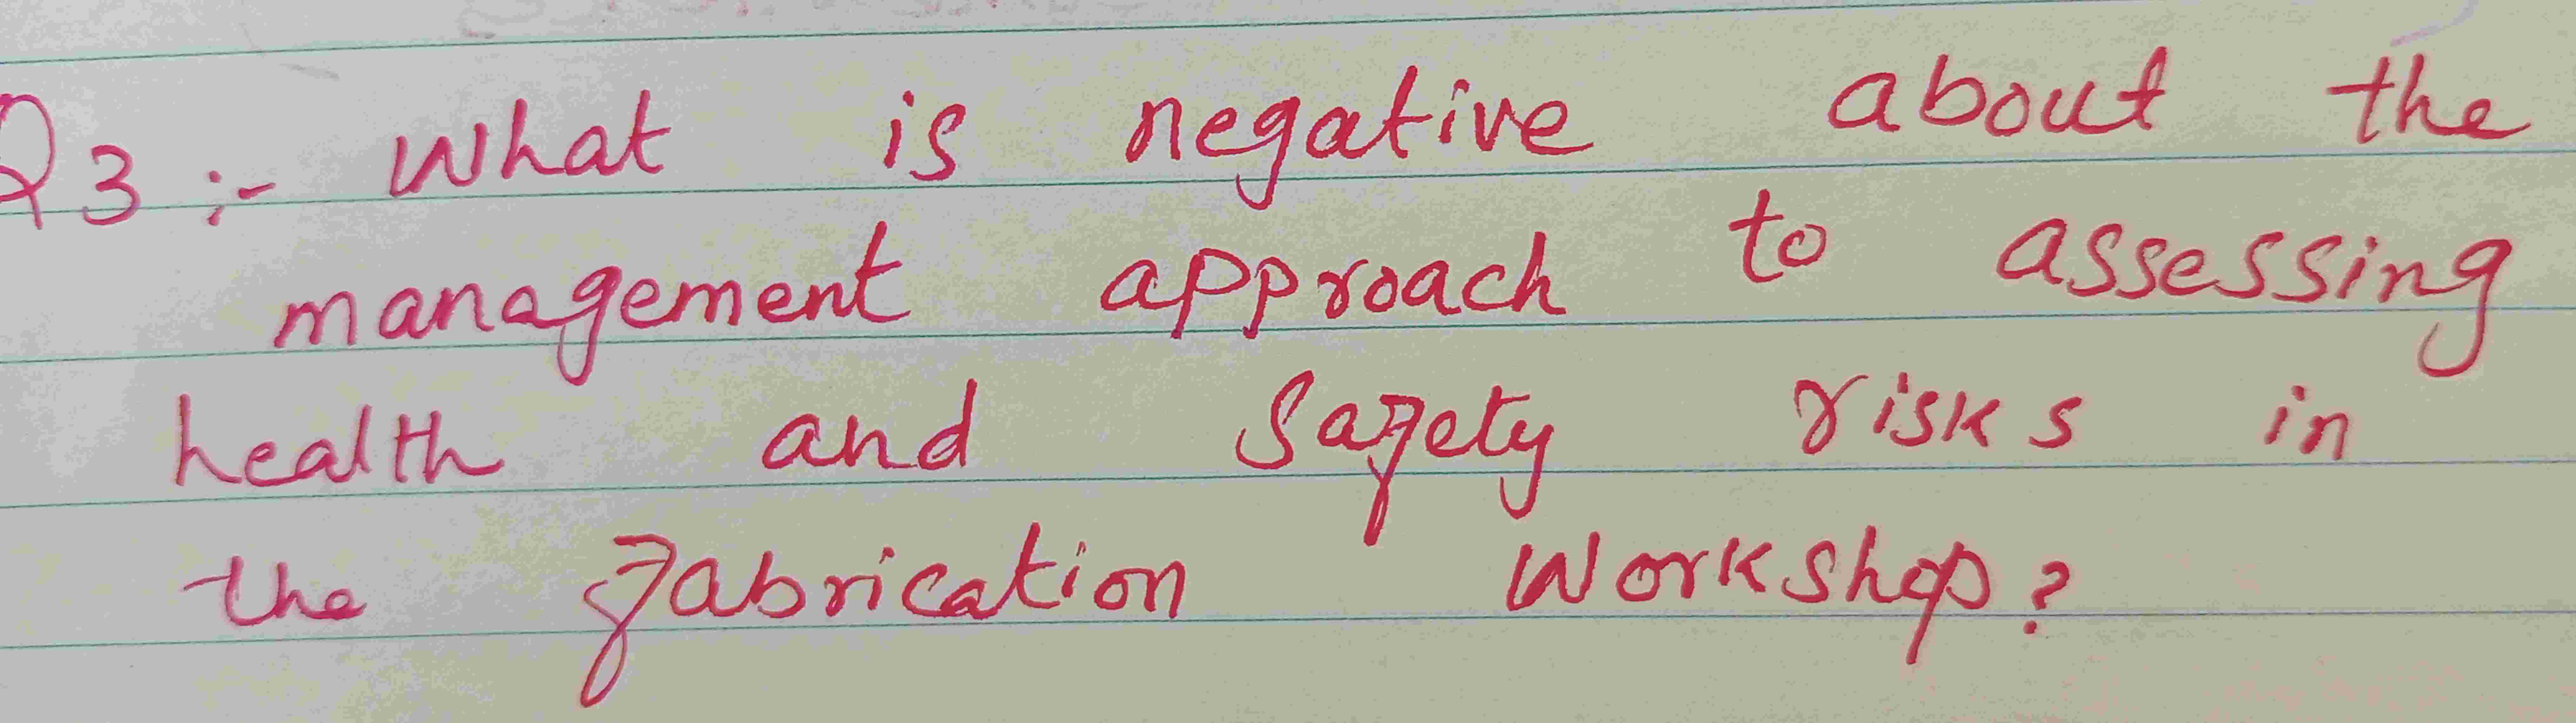 Q3:- What is negative about the
management approach to assessing
health and safety risks in
the fabrication workshop?